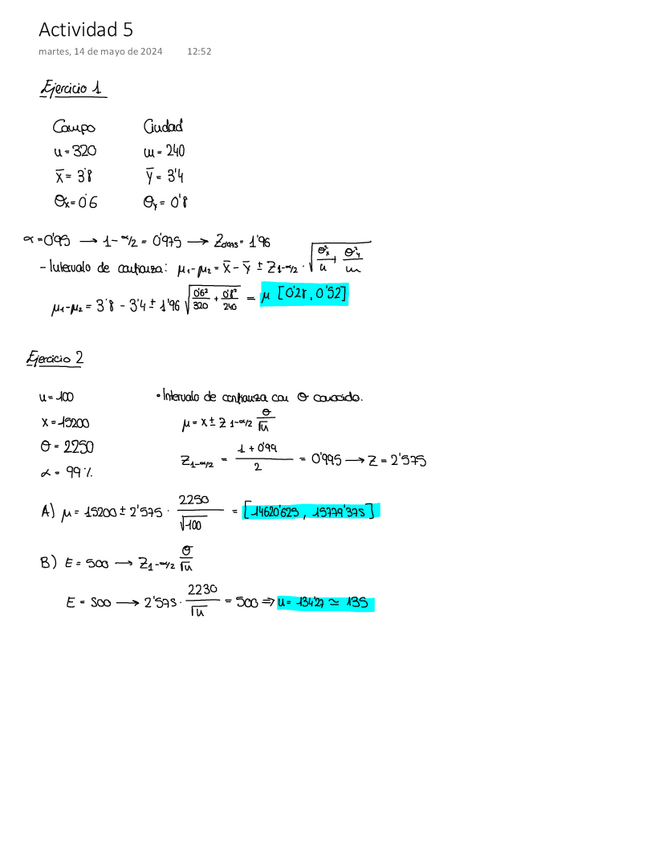 Actividad 5
martes, 14 de mayo de 2024 12:52
Ejercicio 1
Campo Ciudad
n = 320 m = 240
x̄ = 3'8 ȳ = 3'4
θx = 0'6 θy = 0'8
α = 0'95 → 1-α/2 = 0'975 → Z0'975 = 1'96
- Intervalo de confianza: μ1-μ2 = x̄ - ȳ ± Z1-α/2 · √(θ²x/n + θ²y/m)
μ1-μ2 = 3'8 - 3'4 ± 1'96 √(0'6²/320 + 0'8²/240) = μ [0'28, 0'52]
Ejercicio 2
n = 100 • Intervalo de confianza con θ conocido.
x = 15200 μ = x ± Z 1-α/2 θ/√n
θ = 2250 Z1-α/2 = (1 + 0'99)/2 = 0'995 → Z = 2'575
α = 99%
A) μ = 15200 ± 2'575 · 2250/√100 = [14620'625, 15779'375]
B) E = 500 → Z1-α/2 θ/√n
E = 500 → 2'575 · 2250/√n = 500 ⇒ n = 134'27 ≃ 135